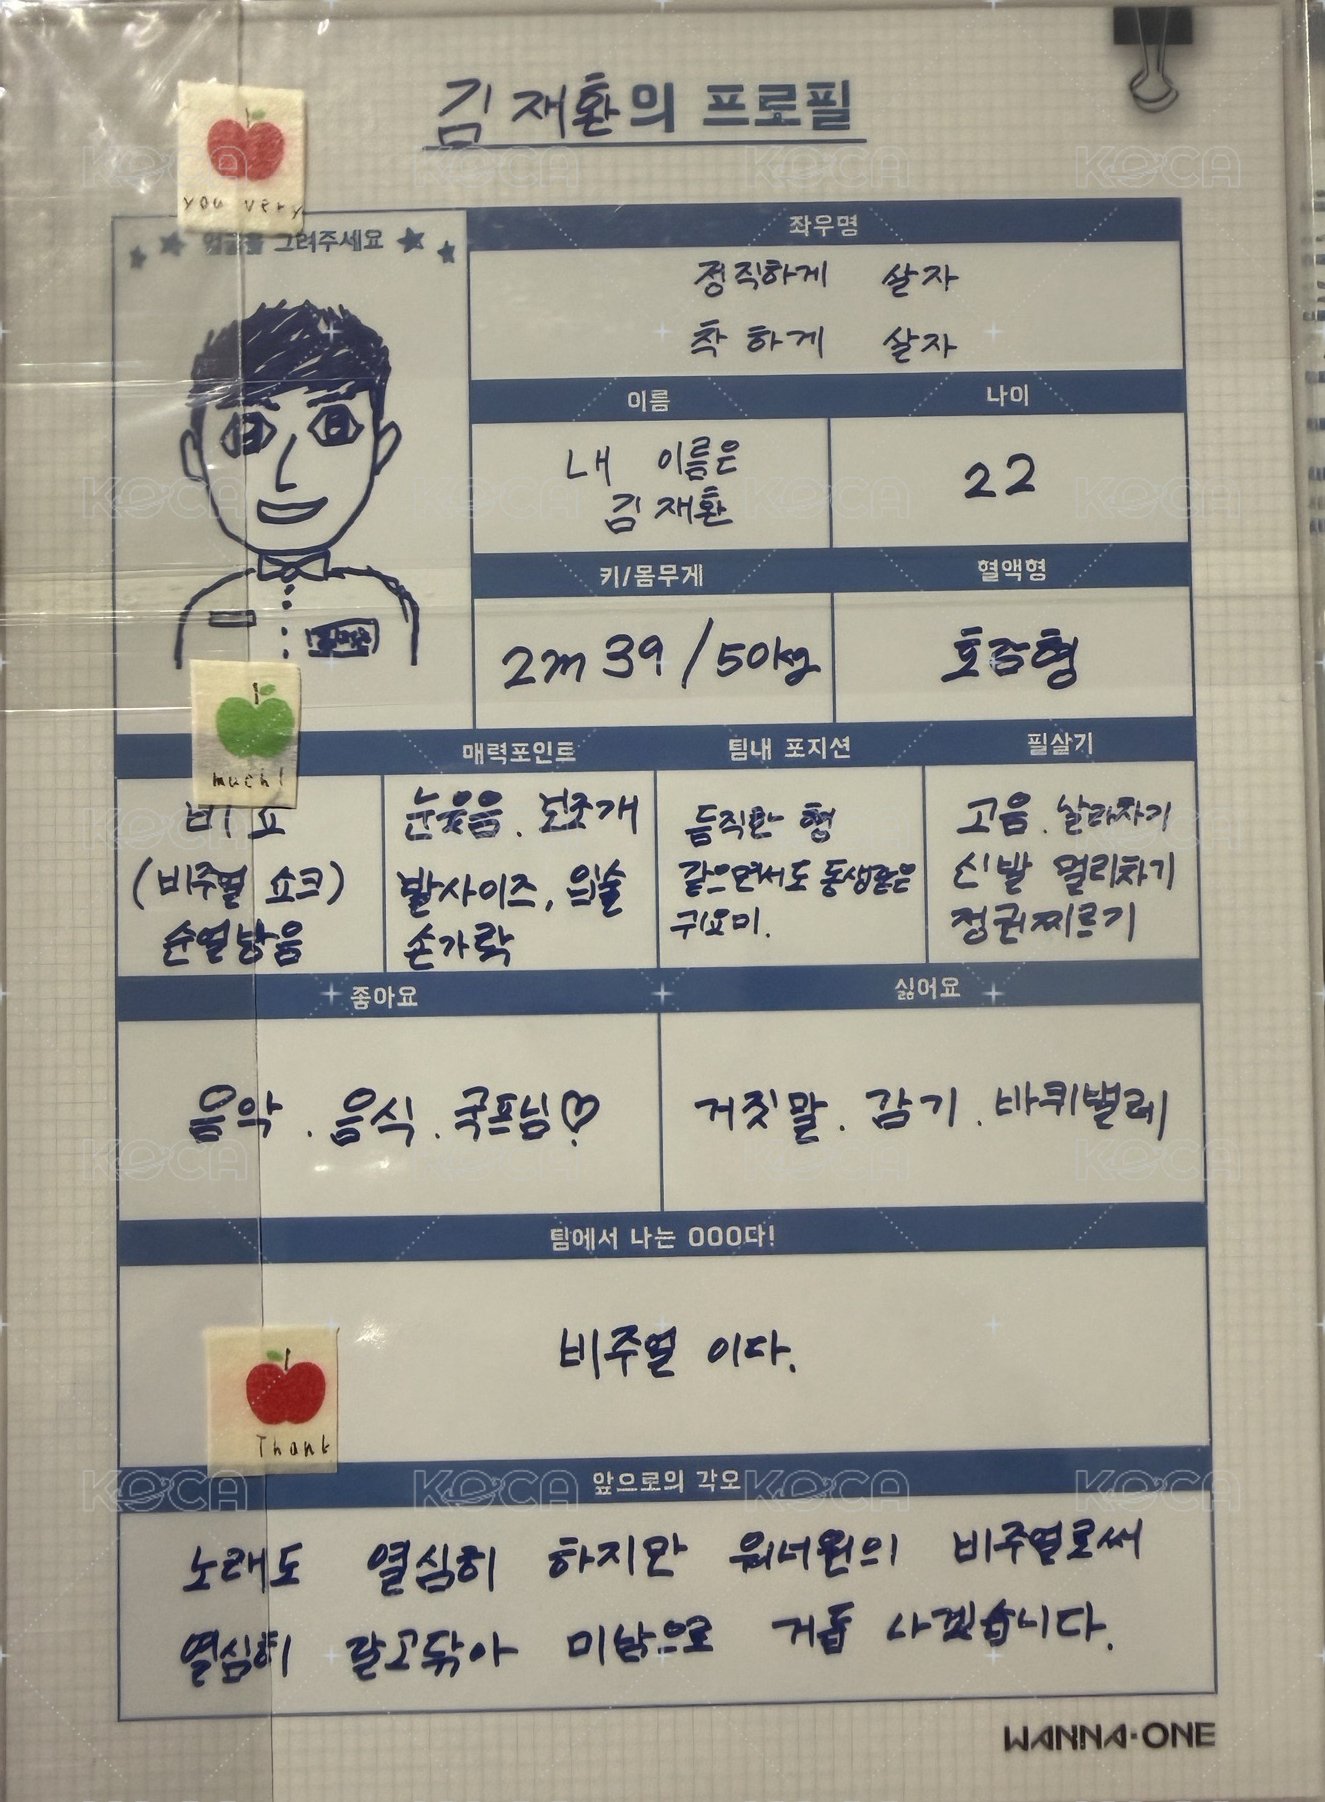 김재환의 프로필
you very
그려주세요
좌우명
정직하게 살자
착하게 살자
이름
나이
내 이름은
김재환
22
키/몸무게
혈액형
2m 39 / 50kg
호감형
much!
매력포인트
팀내 포지션
필살기
비쇼
(비주얼 쇼크)
눈웃음. 보조개
발사이즈, 입술
손가락
듬직한 형
같으면서도 동생같은
귀요미.
고음. 날라차기
신발 멀리차기
정권찌르기
좋아요
싫어요
음악. 음식. 국프님♡
거짓말. 감기. 바퀴벌레
팀에서 나는 OOO다!
비주얼 이다.
Thank
앞으로의 각오
노래도 열심히 하지만 워너원의 비주얼로써
열심히 갈고닦아 미남으로 거듭 나겠습니다.
WANNA·ONE
KOCA